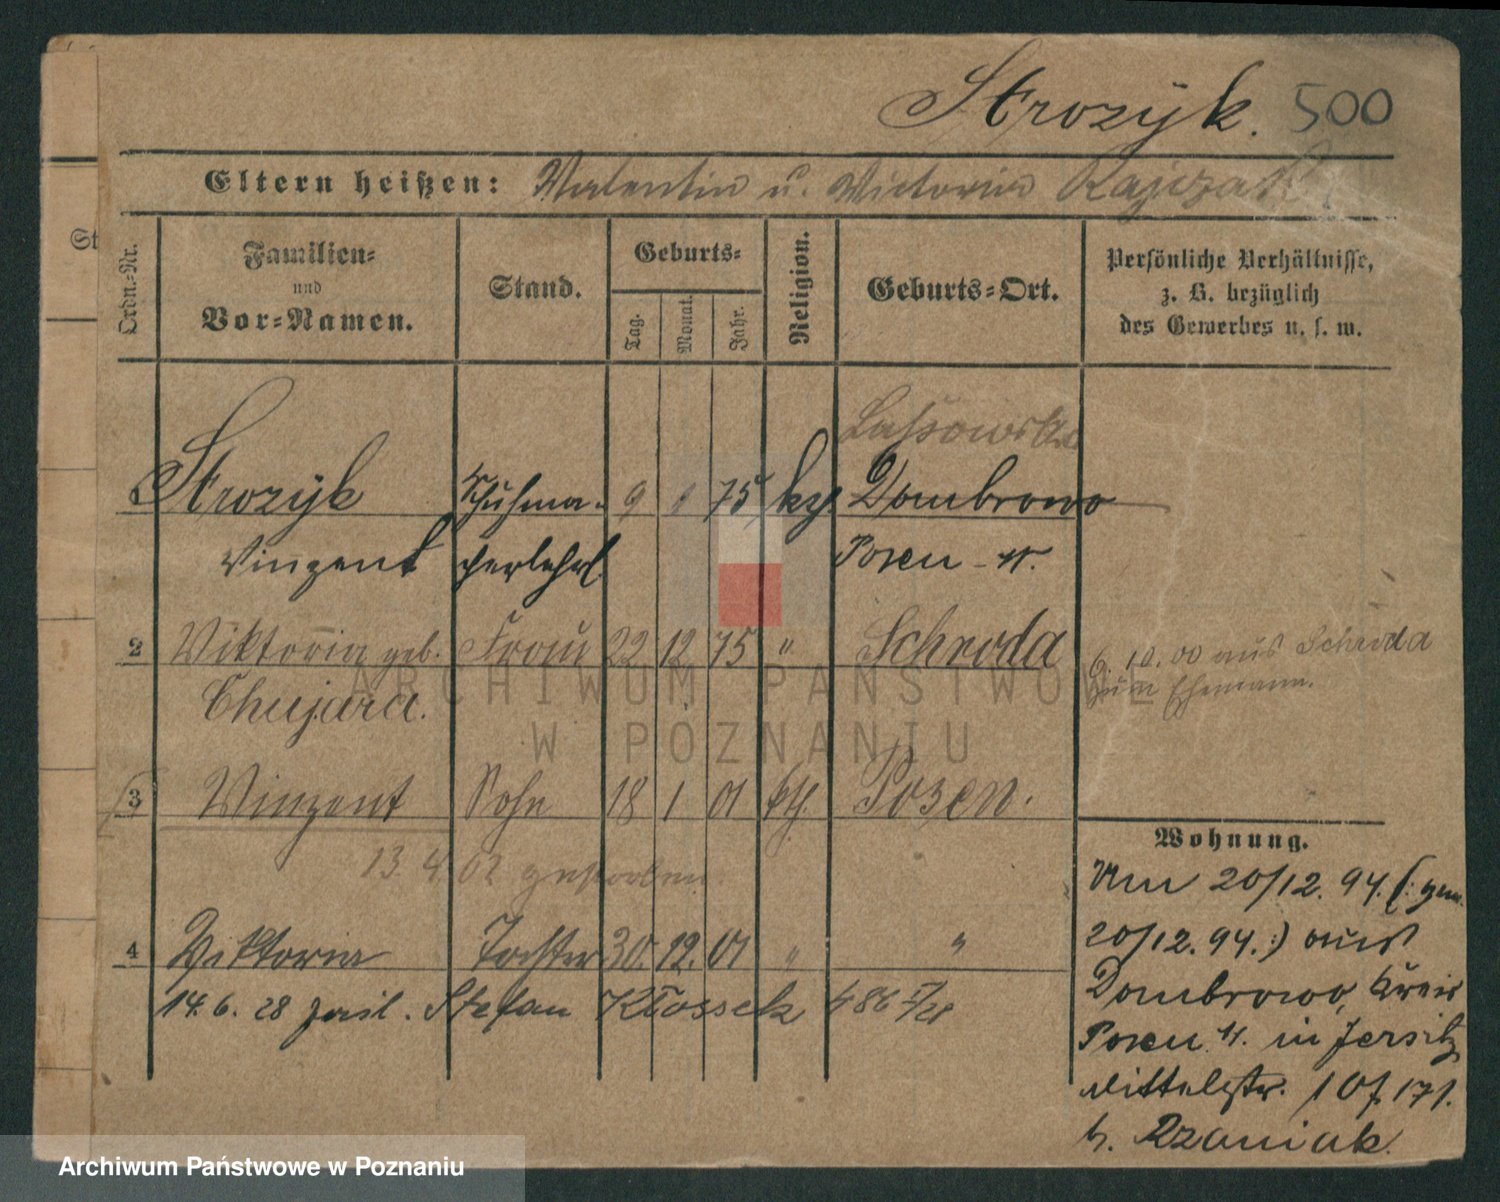 Strozyk. 500
Eltern heißen: Valentin u. Victoria
St
Ordn.-Nr.
Familien-
und
Vor-Namen.
Stand.
Geburts-
Tag.
Monat.
Jahr.
Religion.
Geburts-Ort.
Persönliche Verhältnisse,
z. B. bezüglich
des Gewerbes u. s. w.
1 Strozyk Schuhma- 9 75 Dombrowo
Vinzent cherlehrl. Posen W.
2 Viktoria geb. Frau 22 12 75 " Schroda
6. 10. 00 aus Schroda
zum Ehemann.
Chujara.
3 Vinzent Sohn 18 1 01 kth. Posen.
13 4 02 gestorben.
4 Viktoria Tochter 30. 12. 01 " "
14. 6. 28 Stefan Klossek
Wohnung.
Am 20/12. 94. (: gem.
20/12. 94. :) aus
Dombrowo, Kreis
Posen W. in Jersitz
Mittelstr.
b. Rzaniak.
ARCHIWUM PAŃSTWOWE
W POZNANIU
Archiwum Państwowe w Poznaniu